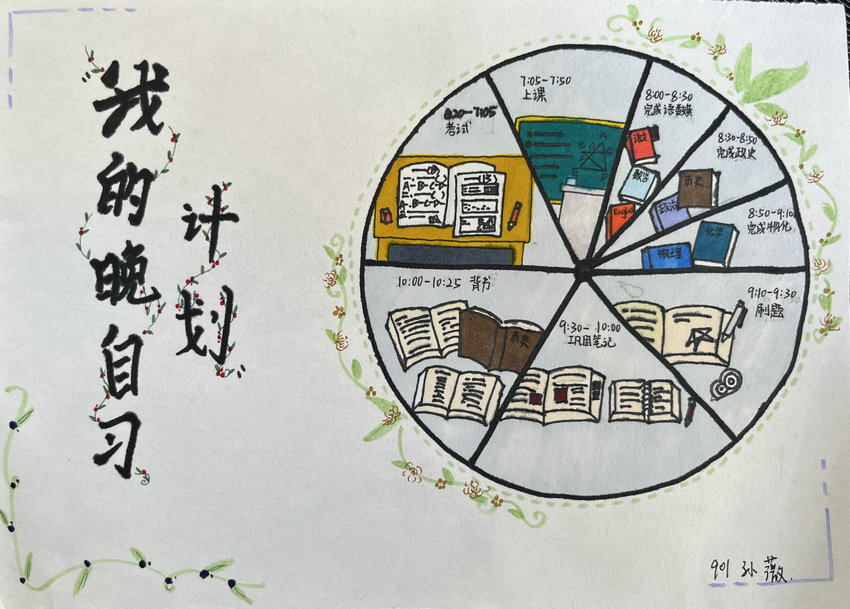 我的晚自习
计划
6:20-7:05
考试
7:05-7:50
上课
8:00-8:30
完成语数英
8:30-8:50
完成政史
8:50-9:10
完成物化
9:10-9:30
刷题
9:30-10:00
巩固笔记
10:00-10:25 背书
A-B-C-D
语文
数学
English
历史
政治
化学
物理
历史
901 孙薇